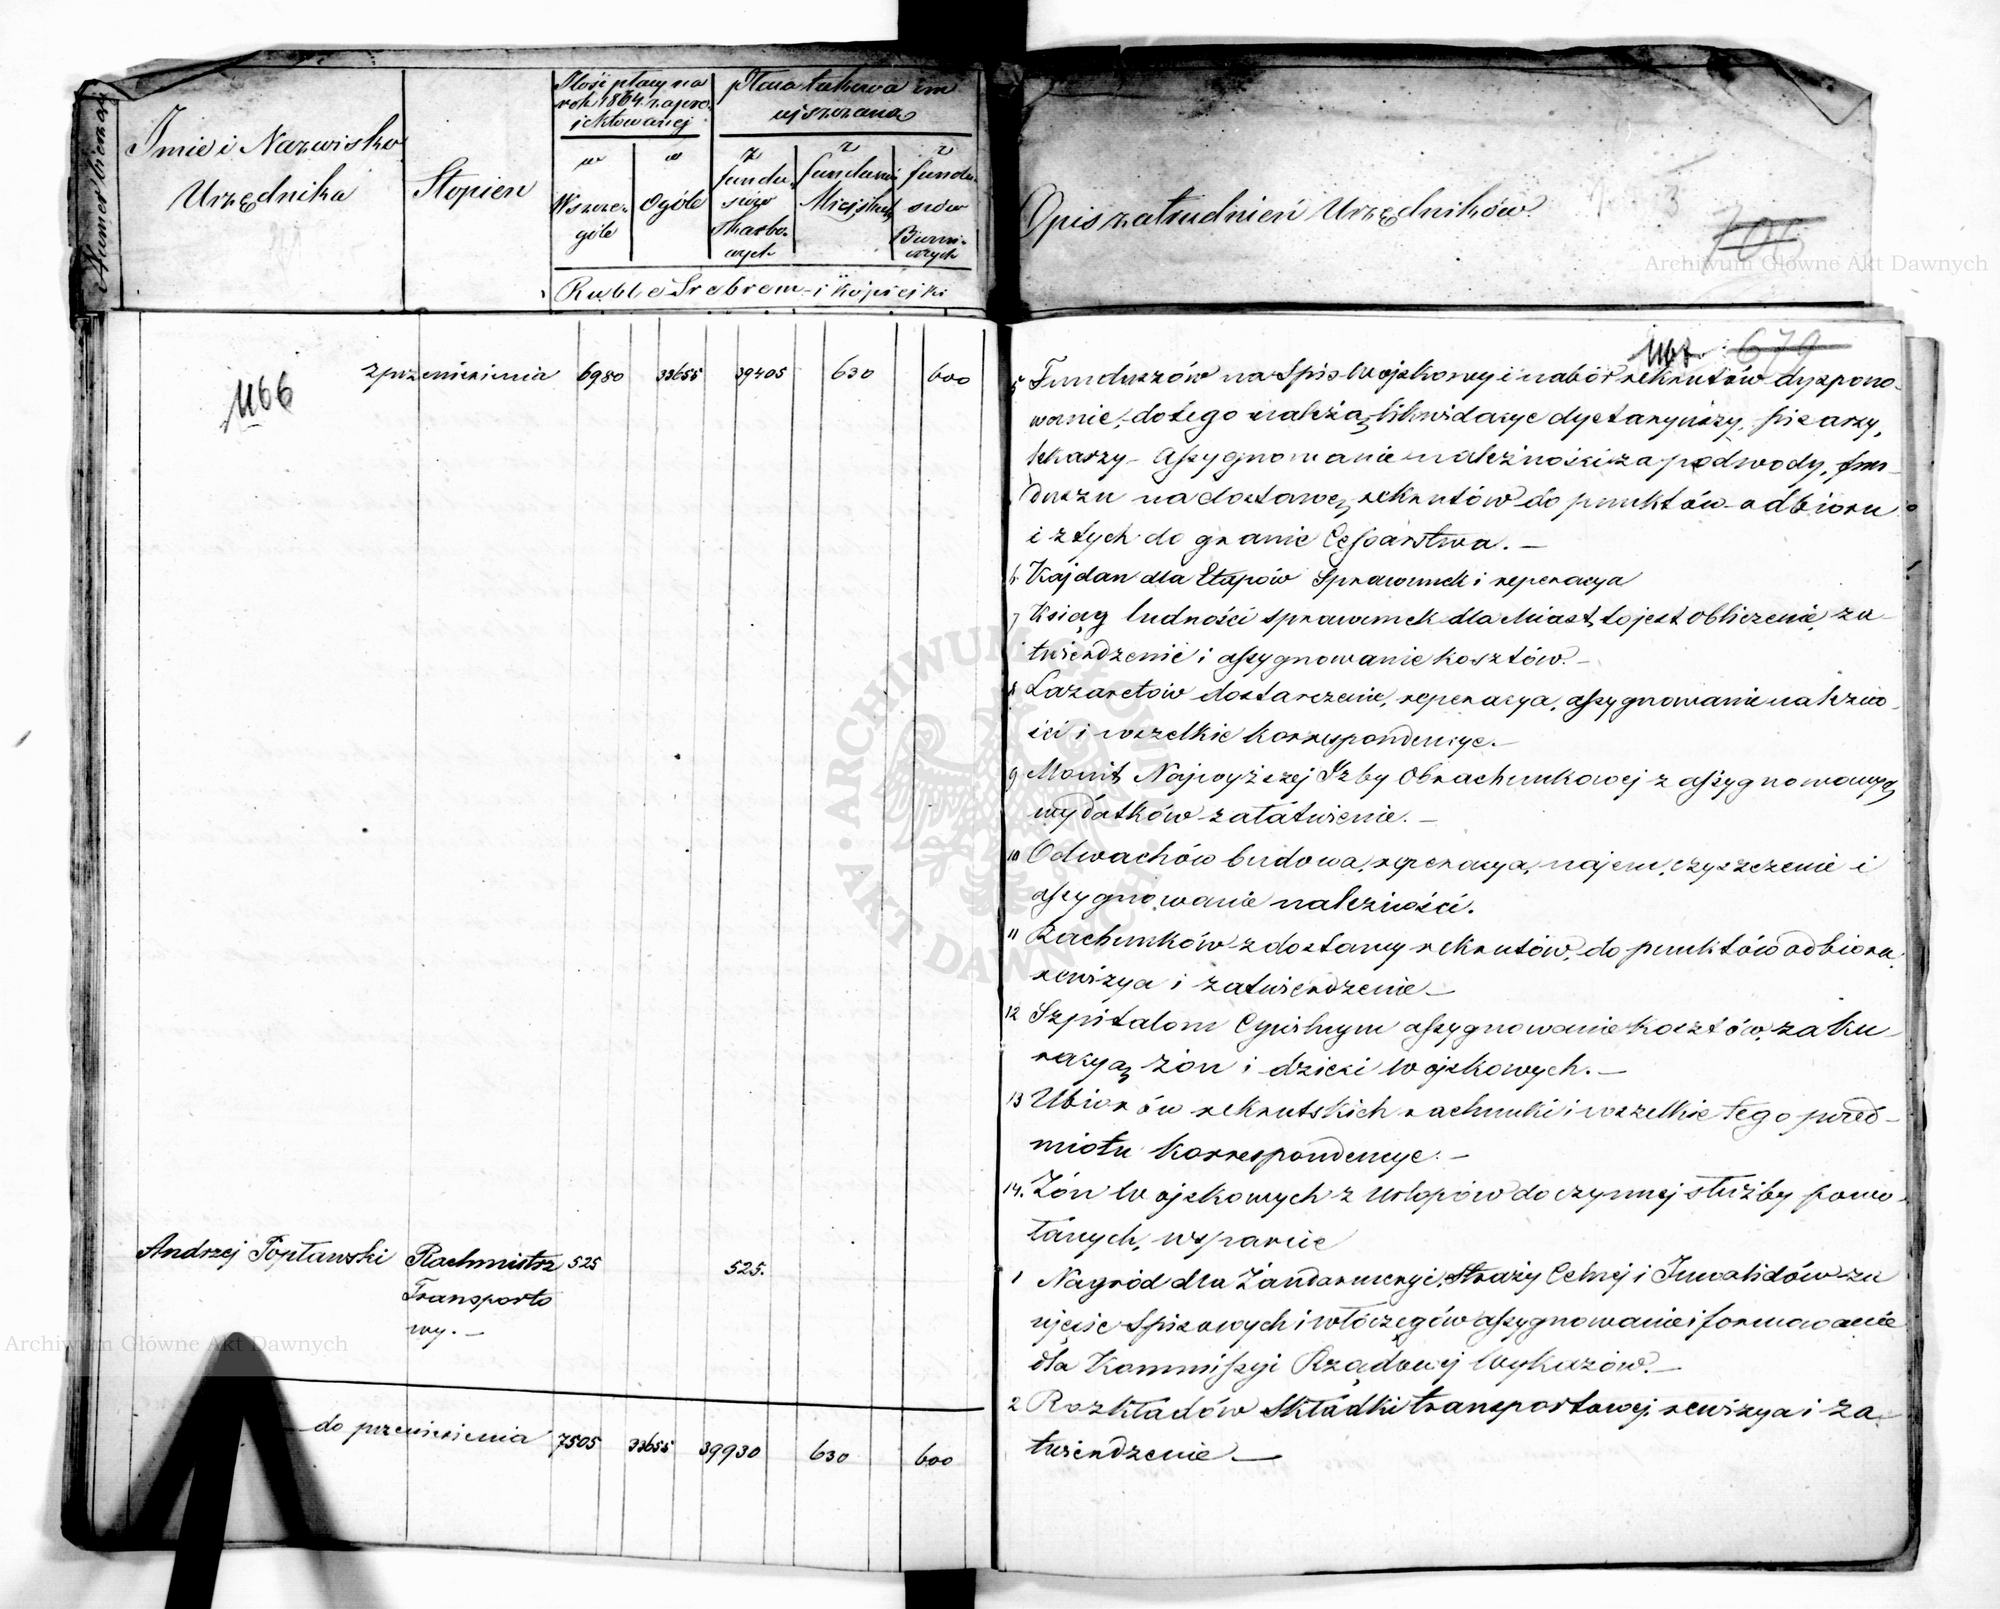 Numer bieżący
Imie i Nazwisko
Urzędnika
Stopień
Ilość płacy na
rok 1864 zapro-
jektowanej
w
Szcze-
góle
w
Ogóle
Płaca takowa
z
fundu-
szów
Skarbo-
wych
z
funduszu
Miejskich
z
fundu-
szów
Rubla Srebrem i kopiejki
Opis zatrudnień Urzędników.
705
Archiwum Główne Akt Dawnych
1166
z przeniesienia 6980 33655 39405 630 600
1167. 679
5 Funduszów na Spis Wojskowy i nabór rekrutów dyspono-
wanie, do tego należą likwidacye dyetaryuszy, pisarzy,
lekarzy – assygnowanie należności za podwody, fun-
duszu na dostawę rekrutów do punktów odbioru
i z tych do granic Cesarstwa. –
6. Kajdan dla Etapów Sprawunek i reperacya
7 Ksiąg ludności sprawunek dla Miast, to jest obliczenie, za-
twierdzenie i assygnowanie kosztów. –
8 Lazaretów dostarczenie, reperacya, assygnowanie należno-
ści i wszelkie korrespondencye. –
9 Monit Najwyższej Izby Obrachunkowej z assygnowanych
wydatków załatwienie. –
10 Odwachów budowa, reperacya, najem, czyszczenie i
assygnowanie należności.
11 Rachunków z dostawy rekrutów, do punktów odbioru,
rewizya i zatwierdzenie –
12 Szpitalom Cywilnym assygnowanie kosztów, za ku-
racyą żon i dzieci Wojskowych. –
13 Ubiorów rekrutskich rachunki i wszelkie tego przed-
miotu korrespondencye. –
14. Żón Wojskowych z Urlopów do czynnej służby powo-
łanych, wsparcie
Andrzej Popławski Rachmistrz 525 525.
Transporto
wy. –
1 Nagród dla Żandarmeryi, Straży Celnej i Inwalidów za
ujęcie Spisowych i włóczęgów assygnowanie i formowanie
dla Kommissyi Rządowej Wykazów. –
2 Rozkładów Składki transportowej, rewizya i za-
twierdzenie. –
do przeniesienia 7505 33655 39930 630 600
Archiwum Główne Akt Dawnych
ARCHIWUM GŁÓWNE AKT DAWNYCH